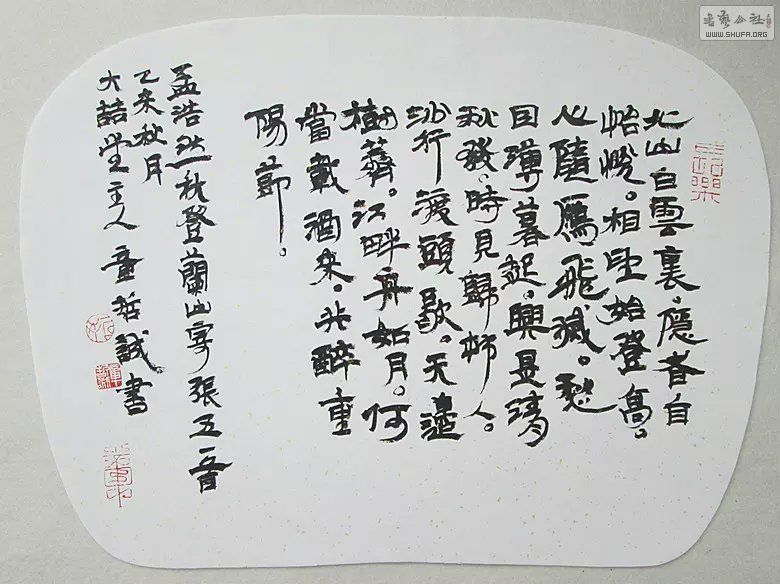 北山白雲裏。隱者自
怡悅。相望始登高。
心隨鴈飛滅。愁
因薄暮起。興是清
秋發。時見歸邨人。
沙行渡頭歇。天邊
樹薺。江畔舟如月。何
當載酒來。共醉重
陽節。
孟浩然秋登蘭山寄張五一首
乙未秋月
大喆堂主人童哲誠書
WWW.SHUFA.ORG